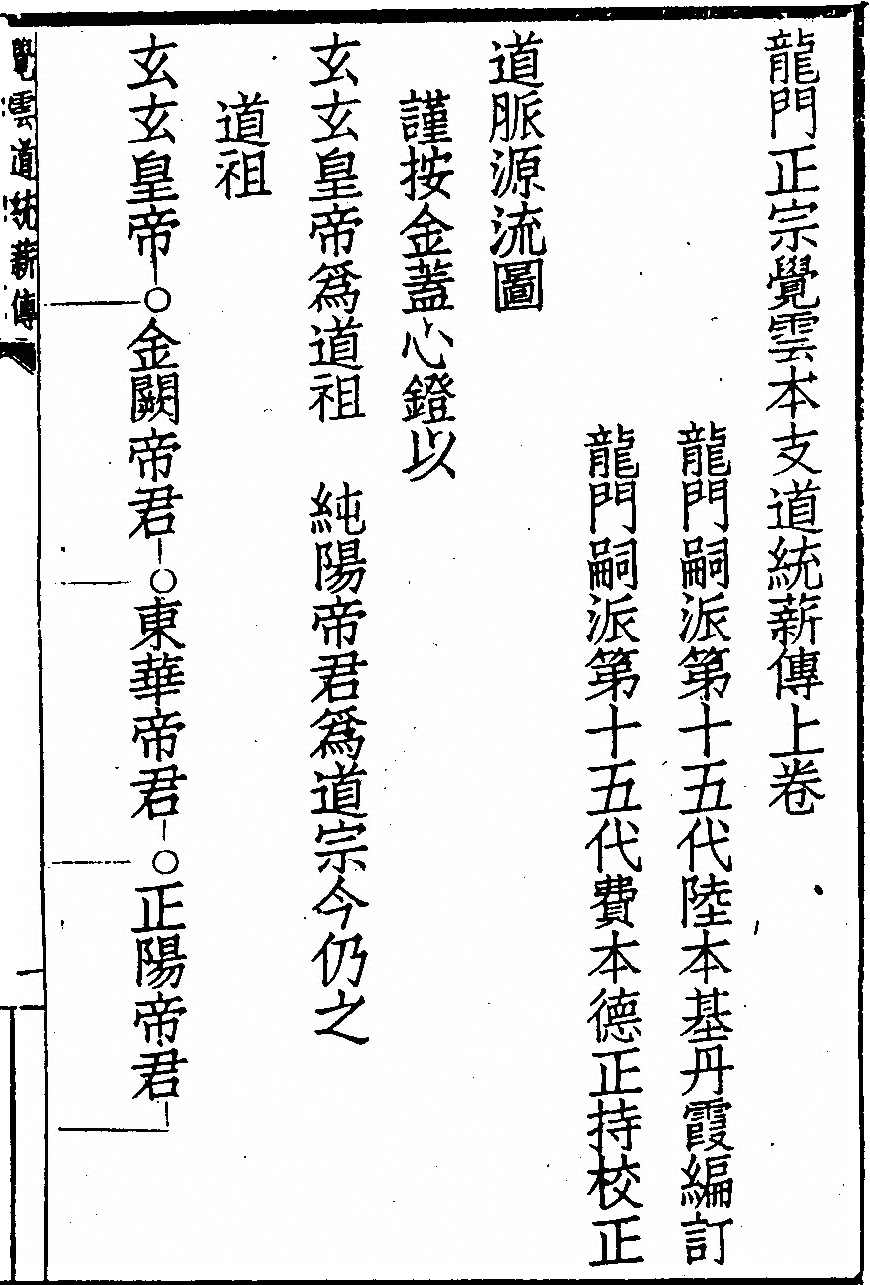 龍門正宗覺雲本支道統薪傳上卷
龍門嗣派第十五代陸本基丹霞編訂
龍門嗣派第十五代費本德正持校正
道脈源流圖
謹按金蓋心鐙以
玄玄皇帝爲道祖　純陽帝君爲道宗今仍之
道祖
玄玄皇帝○金闕帝君○東華帝君○正陽帝君
覺雲道統薪傳